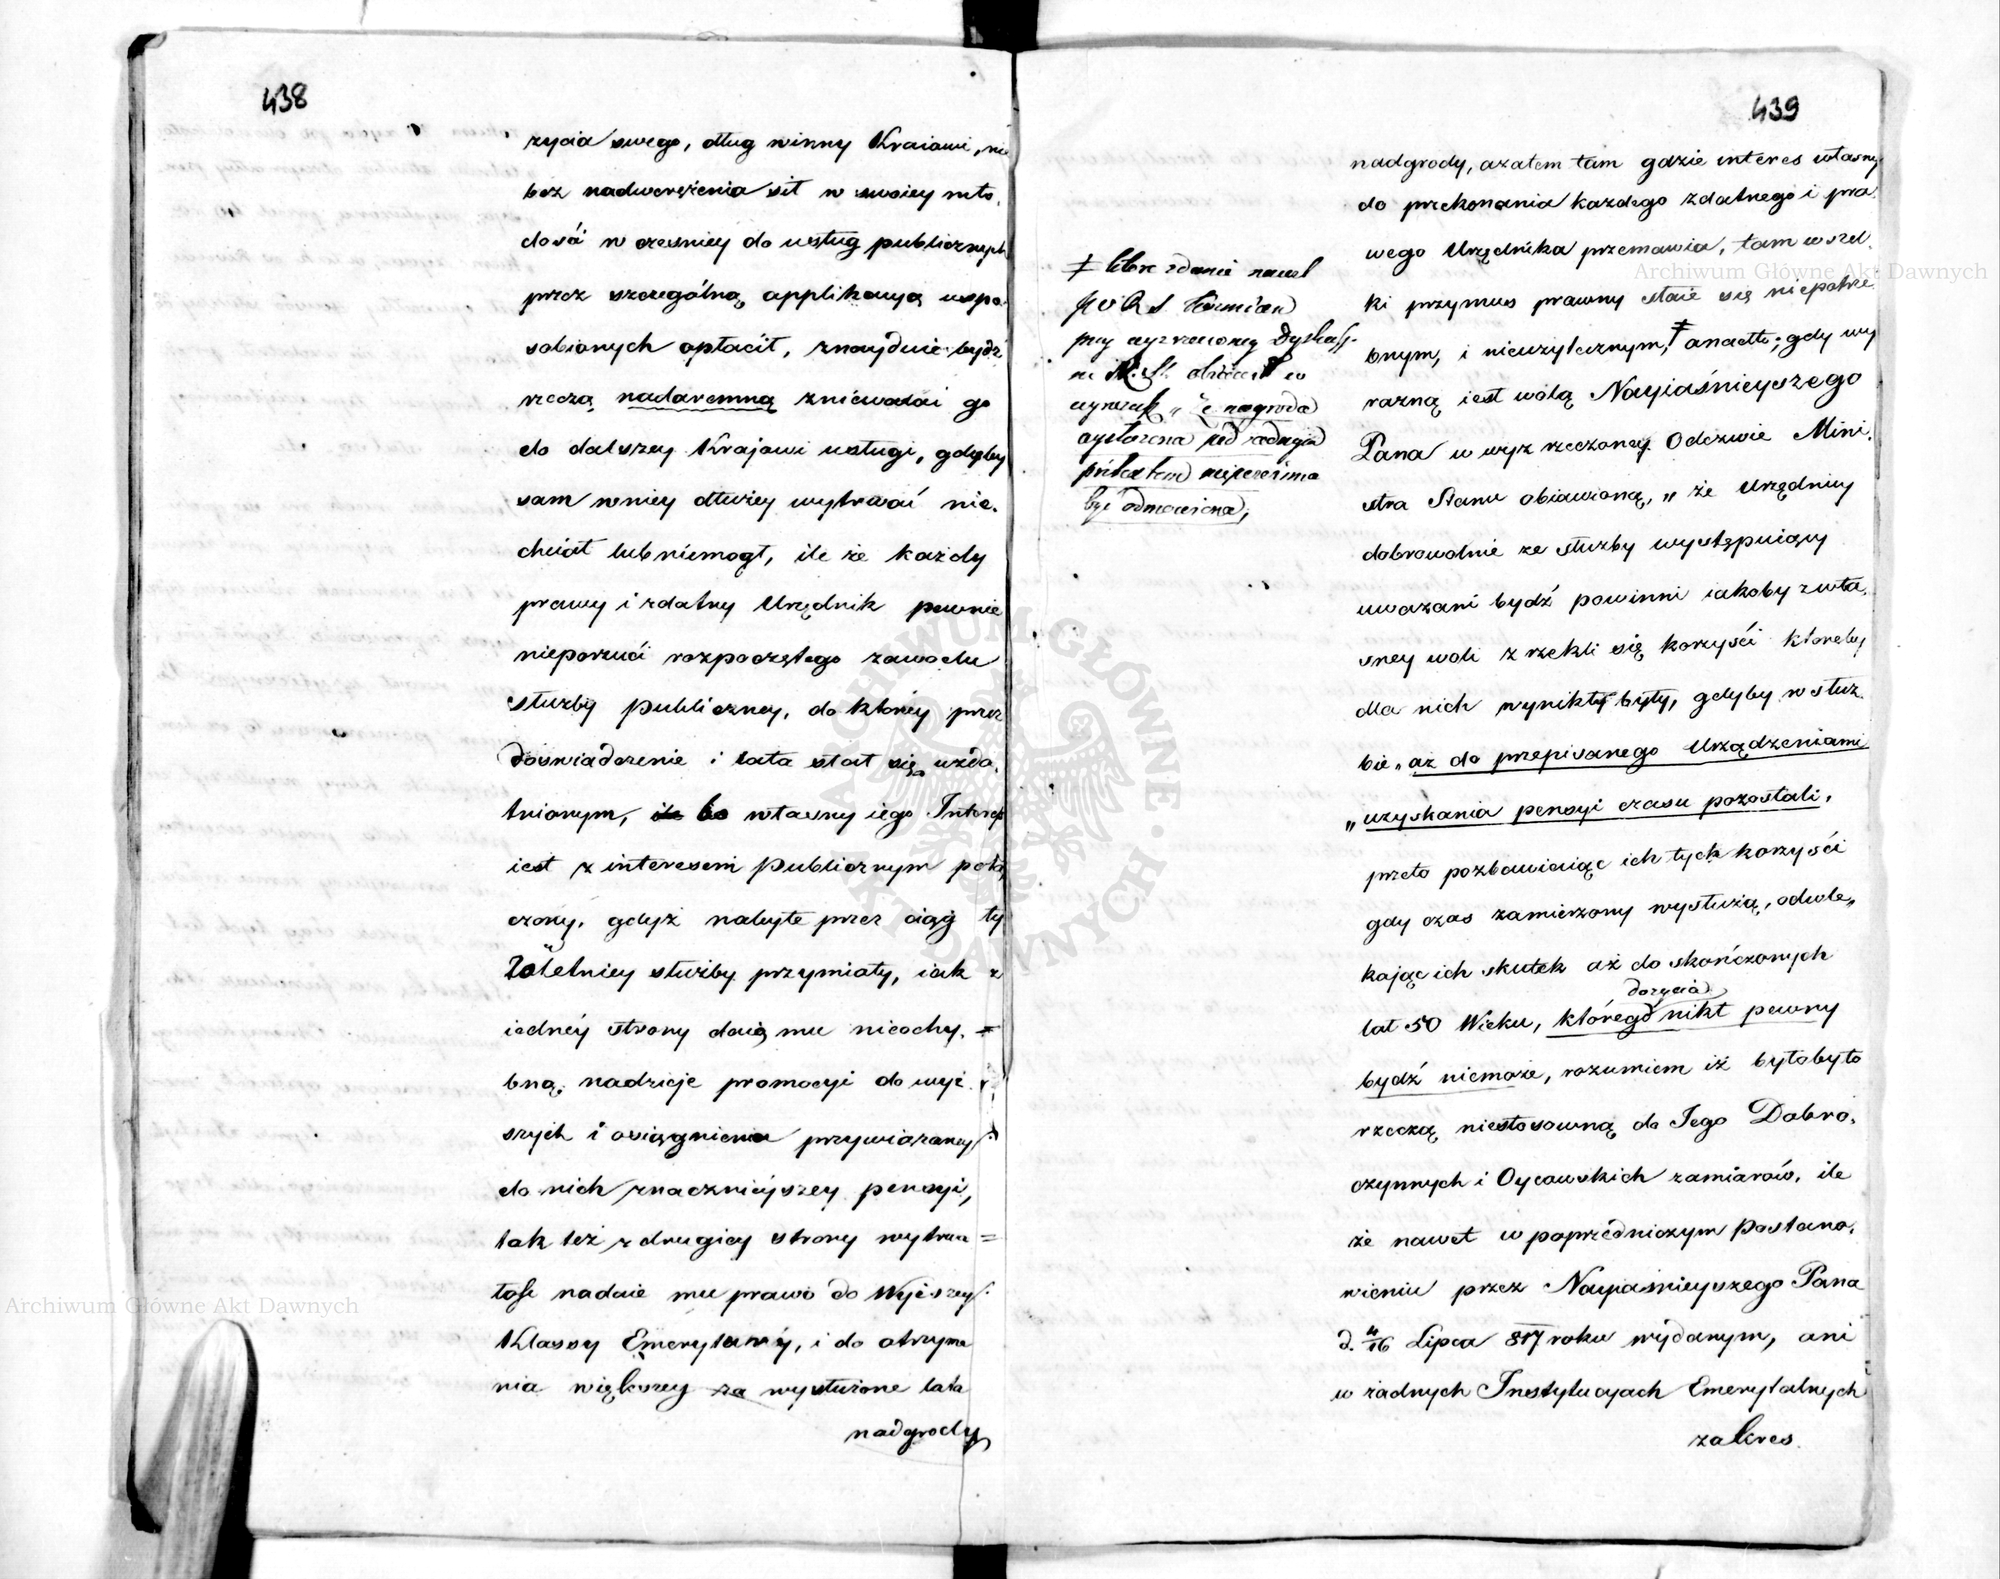 438
życia swego, dług winny Kraiowi, nie
bez nadwerężenia sił w swoiey mło-
dość w cześniey do usług publicznych
przez szczególną applikacyą uspo-
sobionych opłacił, znayduie bydź
rzeczą nadaremną zniewalać go
do dalszey Krajowi usługi, gdyby
sam w niey dłużey wytrwać nie-
chciał lub niemogł, ile że każdy
prawy i zdatny Urzędnik pewnie
nieporzuci rozpoczętego zawodu
służby publiczney, do którey przez
doświadczenie i lata stał się uzda-
tnionym, ile bo własny iego Interes
iest z interesem publicznym połą
czony, gdyż nabyte przez ciąg ty
letniey służby przymioty, iak z
iedney strony daią mu nieochy-
bną nadzieje promocyi do wyż-
szych i osiągnienia przywiązaney
do nich znaczniejszey pensyi,
tak też z drugiey strony wytrwa=
łość nadaie mu prawo do wyższey
Klassy Emerytury, i do otrzyma
nia większey za wysłużone lata
nadgrody
439
nadgrody, azatem tam gdzie interes własny
do przekonania każdego zdatnego i pra
wego Urzędnika przemawia, tam wszel
ki przymus prawny staie się niepotrze
bnym, i nieużytecznym, ‡ anadto; gdy wy
raźną iest wolą Nayiaśnieyszego
Pana w wyż rzeczoney Odezwie Mini-
stra Stanu obiawioną, „ że Urzędnicy
dobrowolnie ze służby występuiący
uważani bydź powinni iakoby z wła-
sney woli zrzekli się korzyści któreby
dla nich wynikły były, gdyby w służ-
bie „ aż do przepisanego Urządzeniami
„ uzyskania pensyi czasu pozostali,
przeto pozbawiaiąc ich tych korzyści
gdy czas zamierzony wysłużą, odwle„
kając ich skutek aż do skończonych
dożycia
lat 50 Wieku, którego nikt pewny
bydź niemoże, rozumiem iż byłoby to
rzeczą niestosowną do Jego Dobro-
czynnych i Oycowskich zamiarów, ile
że nawet w poprzedniczym Postano-
wieniu przez Nayiaśnieyszego Pana
d. 4/16 Lipca 817 roku wydanym, ani
w żadnych Instytucyach Emerytalnych
zakres
‡ które zdanie nawet
Koźmian
przy wyrzeczoney Dyskuss-
w
wyrazach „ Że nagroda
wysłużona pod żadnym
pretextem niepowinna
być odmówiona,